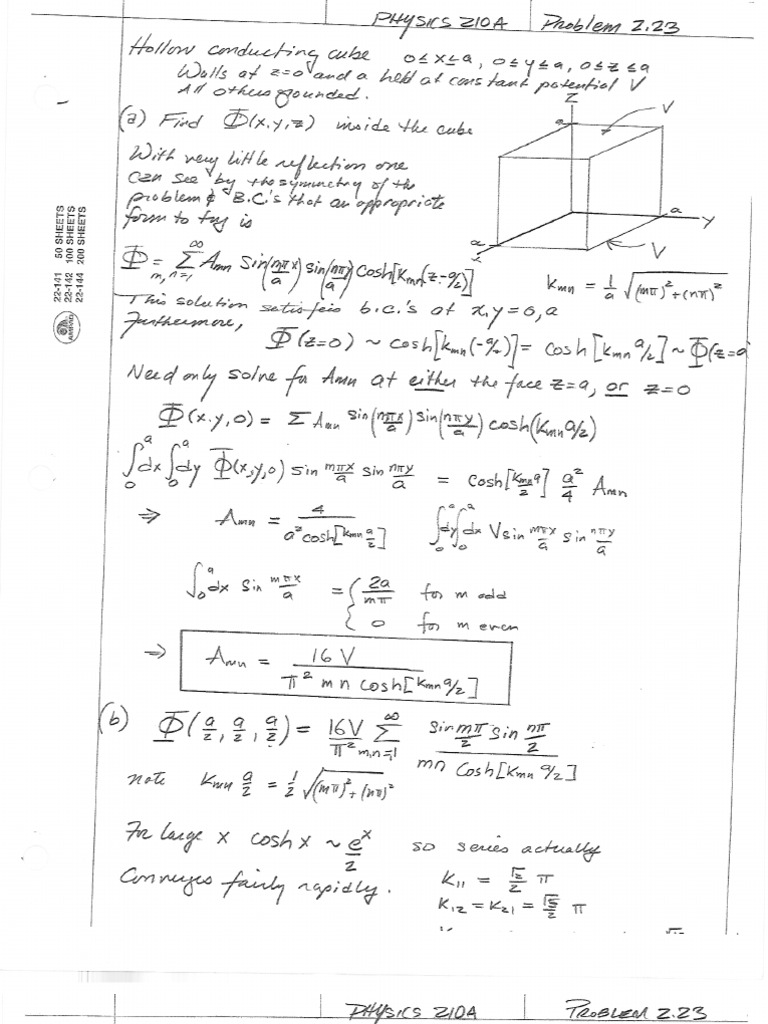 PHYSICS 210A | Problem 2.23
Hollow conducting cube 0≤x≤a, 0≤y≤a, 0≤z≤a
Walls at z=0 and a held at constant potential V
All others grounded.
(a) Find Φ(x,y,z) inside the cube
With very little reflection one
can see by the symmetry of the
problem & B.C.'s that an appropriate
form to try is
z
V
a
a
y
a
x
V
Φ = Σ_{m,n=1}^∞ Amn sin(mπx/a) sin(nπy/a) cosh[kmn(z-a/2)]
kmn = 1/a √((mπ)²+(nπ)²)
This solution satisfies b.c.'s at x,y=0,a
Furthermore,
Φ(z=0) ~ cosh[kmn(-a/2)] = cosh[kmn a/2] ~ Φ(z=a
Need only solve for Amn at either the face z=a, or z=0
Φ(x,y,0) = Σ Amn sin(mπx/a) sin(nπy/a) cosh(kmn a/2)
∫₀ᵃdx ∫₀ᵃdy Φ(x,y,0) sin mπx/a sin nπy/a = cosh[kmn a/2] a²/4 Amn
⇒ Amn = 4/(a² cosh[kmn a/2]) ∫₀ᵃdy ∫₀ᵃdx V sin mπx/a sin nπy/a
∫₀ᵃ dx sin mπx/a = { 2a/mπ for m odd
0 for m even
⇒ Amn = 16 V/(π² mn cosh[kmn a/2])
(b) Φ(a/2, a/2, a/2) = 16V/π² Σ_{m,n=1}^∞ (sin mπ/2 sin nπ/2)/(mn cosh[kmn a/2])
note kmn a/2 = 1/2 √((mπ)²+(nπ)²)
For large x cosh x ~ eˣ/2 so series actually
Converges fairly rapidly.
K11 = √2/2 π
K12 = K21 = √5/2 π
22-141 50 SHEETS
22-142 100 SHEETS
22-144 200 SHEETS
AMPAD
PHYSICS 210A | PROBLEM 2.23